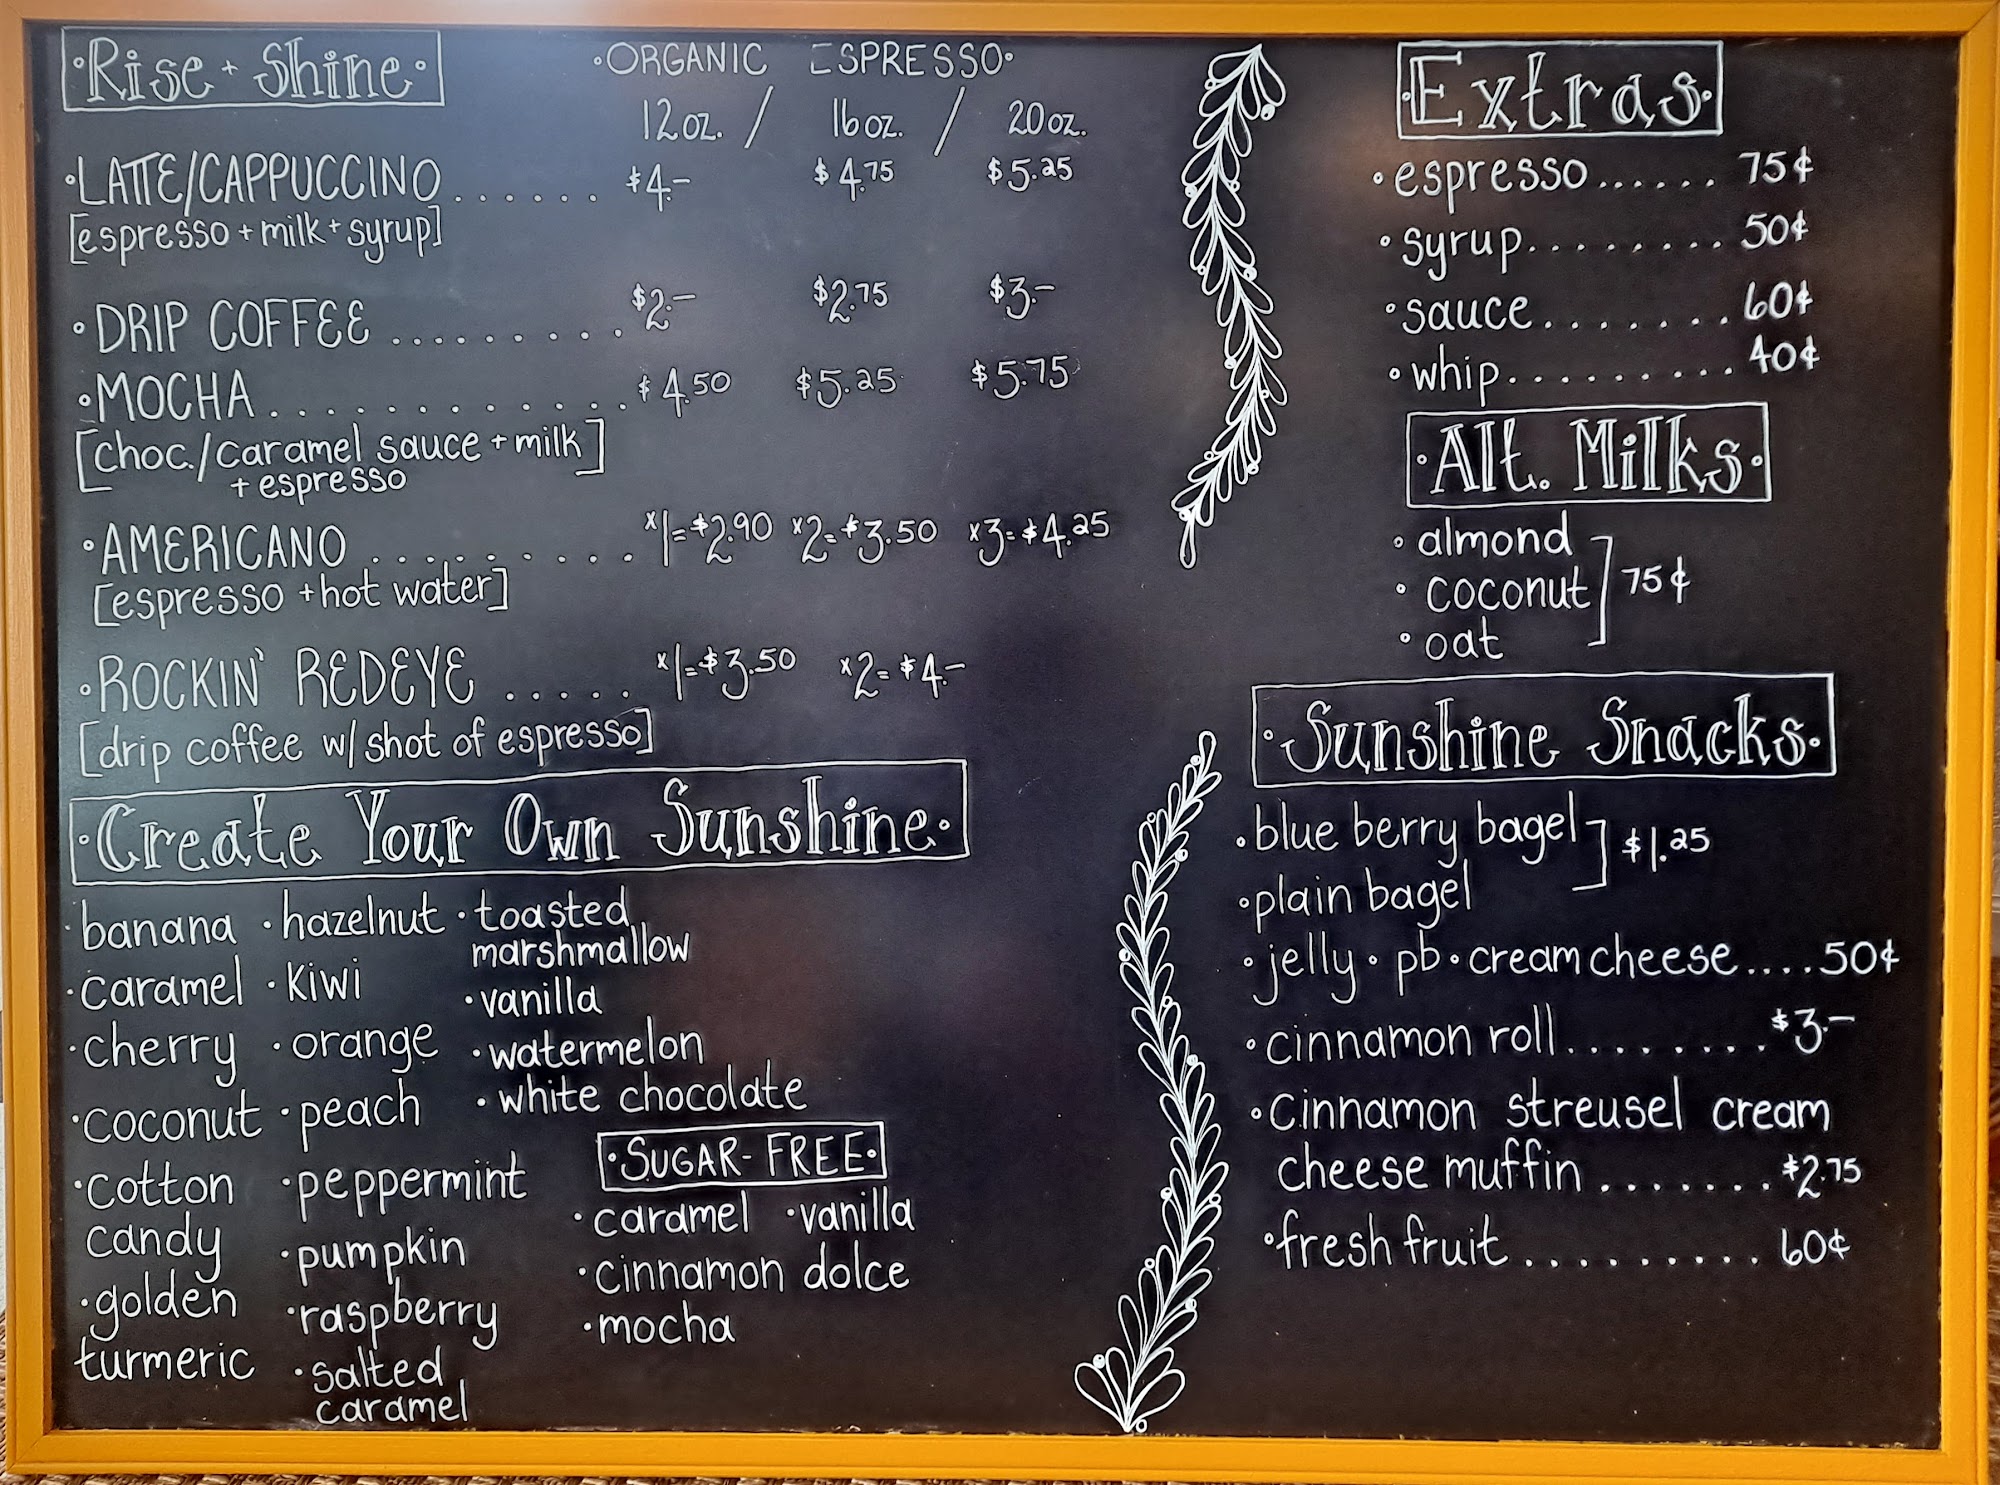 •Rise + Shine•
•ORGANIC ESPRESSO•
12oz. / 16oz. / 20oz.
•LATTE/CAPPUCCINO ...... $4.– $4.75 $5.25
[espresso + milk + syrup]
•DRIP COFFEE ......... $2.– $2.75 $3.–
•MOCHA ............. $4.50 $5.25 $5.75
[choc./caramel sauce + milk]
+ espresso
•AMERICANO .......... x1=$2.90 x2=$3.50 x3=$4.25
[espresso + hot water]
•ROCKIN' REDEYE ..... x1=$3.50 x2=$4.–
[drip coffee w/shot of espresso]
•Create Your Own Sunshine•
•banana
•caramel
•cherry
•coconut
•cotton
candy
•golden
turmeric
•hazelnut
•kiwi
•orange
•peach
•peppermint
•pumpkin
•raspberry
•salted
caramel
•toasted
marshmallow
•vanilla
•watermelon
•white chocolate
•SUGAR-FREE•
•caramel •vanilla
•cinnamon dolce
•mocha
•Extras•
•espresso...... 75¢
•syrup......... 50¢
•sauce....... 60¢
•whip......... 40¢
•Alt. Milks•
•almond
•coconut ] 75¢
•oat
•Sunshine Snacks•
•blue berry bagel ] $1.25
•plain bagel
•jelly • pb • cream cheese....50¢
•cinnamon roll......... $3.–
•cinnamon streusel cream
cheese muffin ....... $2.75
•fresh fruit .......... 60¢